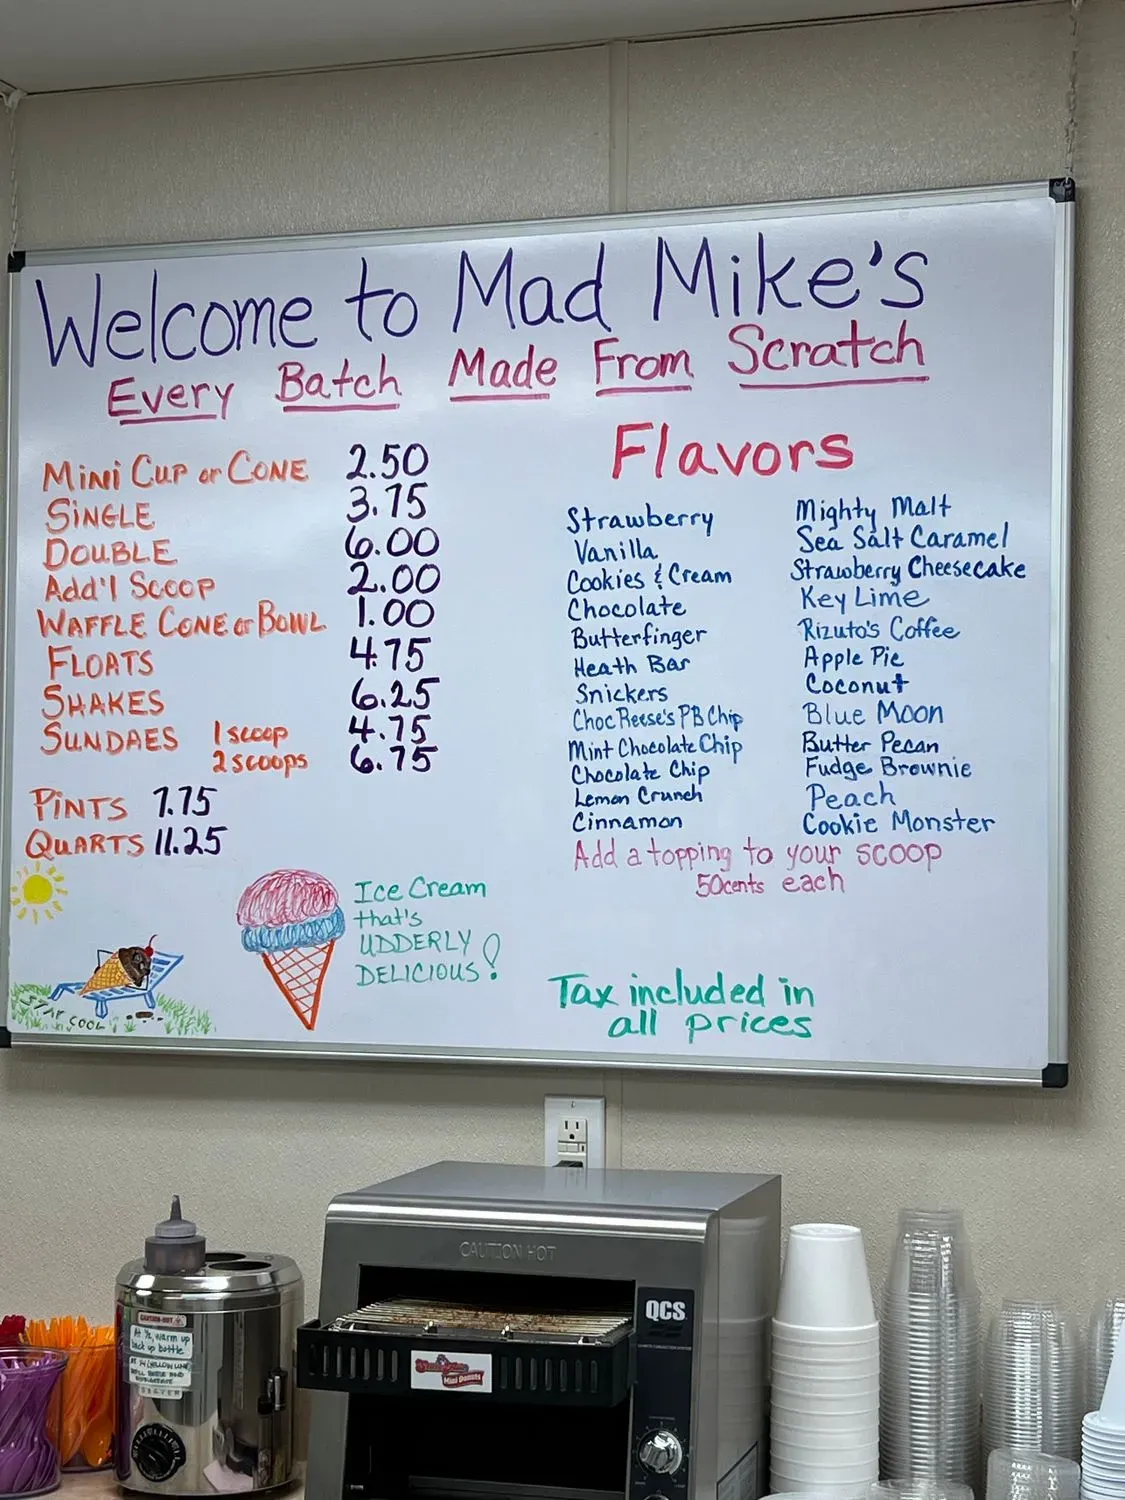 Welcome to Mad Mike's
Every Batch Made From Scratch
MINI CUP or CONE 2.50
SINGLE 3.75
DOUBLE 6.00
Add'l SCOOP 2.00
WAFFLE CONE or BOWL 1.00
FLOATS 4.75
SHAKES 6.25
SUNDAES 1 scoop 4.75
2 scoops 6.75
PINTS 7.75
QUARTS 11.25
STAY COOL
Ice Cream
that's
UDDERLY
DELICIOUS!
Flavors
Strawberry
Vanilla
Cookies & Cream
Chocolate
Butterfinger
Heath Bar
Snickers
Choc Reese's PB Chip
Mint Chocolate Chip
Chocolate Chip
Lemon Crunch
Cinnamon
Mighty Malt
Sea Salt Caramel
Strawberry Cheesecake
Key Lime
Rizuto's Coffee
Apple Pie
Coconut
Blue Moon
Butter Pecan
Fudge Brownie
Peach
Cookie Monster
Add a topping to your scoop
50cents each
Tax included in
all prices
CAUTION HOT
QCS
Mini Donuts
CAUTION-HOT
At ½, warm up
back up bottle
SERVER